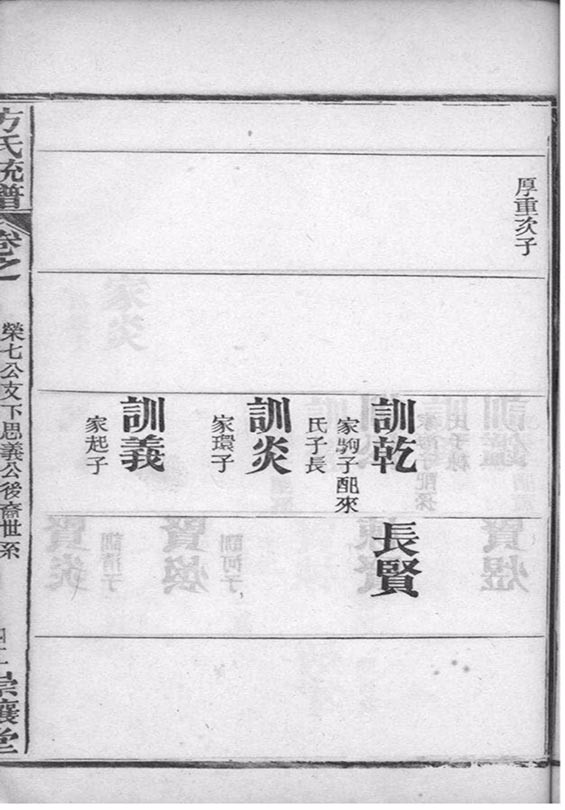 厚重次子
訓乾
家駒子配來
氏子長
訓炎
家環子
訓義
家起子
長賢
方氏統譜
卷之
榮七公支下思義公後裔世系
崇讓堂